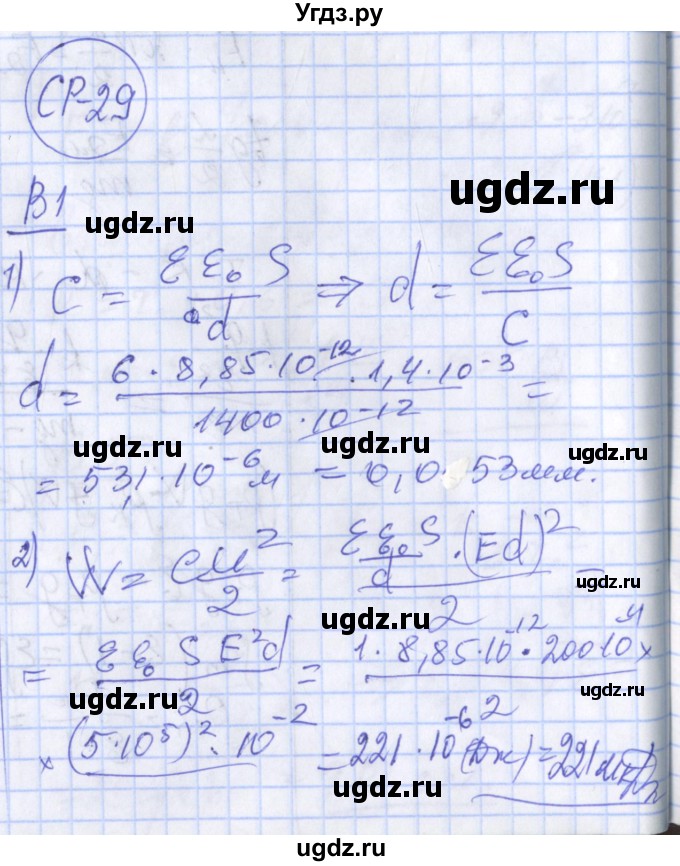 Угдз.ру
СР-29
ugdz.ru
В1
ugdz.ru
1) C = εε₀S / d ⇒ d = εε₀S / C
ugdz.ru ugdz.ru
d = 6 · 8,85 · 10⁻¹² · 1,4 · 10⁻³ / 1400 · 10⁻¹² =
ugdz.ru ugdz.ru
= 53,1 · 10⁻⁶ м = 0,053 мм.
2) W = CU² / 2 = εε₀S / d · (Ed)² / 2 =
ugdz.ru ugdz.ru
= εε₀SE²d / 2 = 1 · 8,85 · 10⁻¹² · 200 · 10⁻⁴ × / 2
ugdz.ru ugdz.ru
× (5 · 10⁵)² · 10⁻² = 221 · 10⁻⁶ (Дж) = 221 мкДж
ugdz.ru ugdz.ru
ugdz.ru